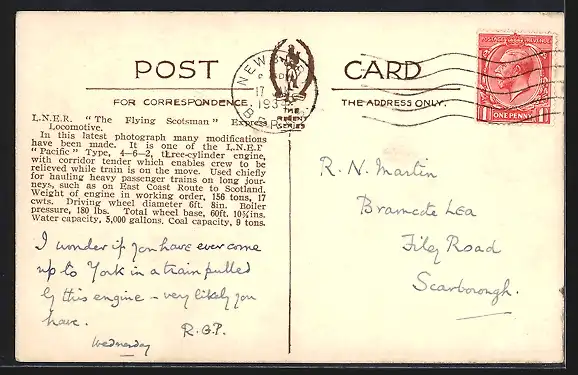 POST CARD
FOR CORRESPONDENCE. THE ADDRESS ONLY.
THE
REGENT
SERIES
NEW
17
193
POSTAGE REVENUE
1 ONE PENNY 1
L.N.E.R. "The Flying Scotsman" Express
Locomotive.
In this latest photograph many modifications
have been made. It is one of the L.N.E.R
"Pacific" Type, 4-6-2, three-cylinder engine,
with corridor tender which enables crew to be
relieved while train is on the move. Used chiefly
for hauling heavy passenger trains on long jour-
neys, such as on East Coast Route to Scotland.
Weight of engine in working order, 156 tons, 17
cwts. Driving wheel diameter 6ft. 8in. Boiler
pressure, 180 lbs. Total wheel base, 60ft. 10⅝ins.
Water capacity, 5,000 gallons. Coal capacity, 9 tons.
I wonder if you have ever come
up to York in a train pulled
by this engine - very likely you
have. R.G.P.
Wednesday
R. N. Martin
Bramcote Lea
Filey Road
Scarborough.